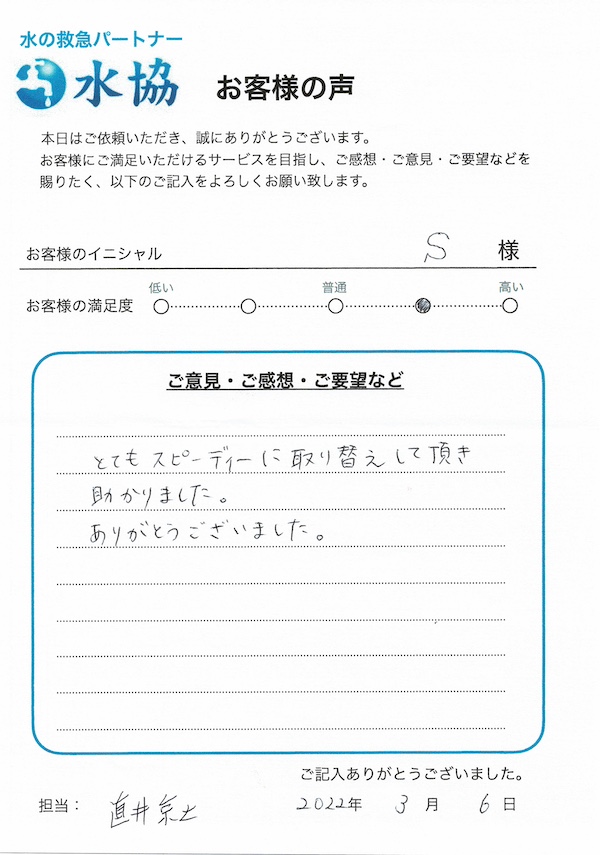 水の救急パートナー
水協
お客様の声
本日はご依頼いただき、誠にありがとうございます。
お客様にご満足いただけるサービスを目指し、ご感想・ご意見・ご要望などを
賜りたく、以下のご記入をよろしくお願い致します。
お客様のイニシャル S 様
低い 普通 高い
お客様の満足度
ご意見・ご感想・ご要望など
とてもスピーディーに取り替えして頂き
助かりました。
ありがとうございました。
ご記入ありがとうございました。
担当: 直井 2022年 3月 6日